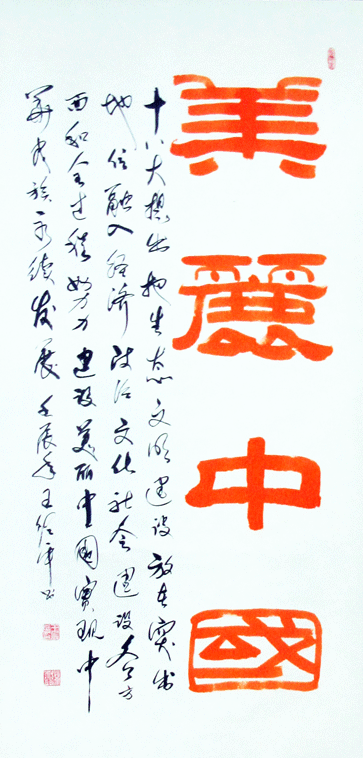 美麗中國
十八大提出把生态文明建设放在突出
地位融入经济政治文化社会建设各方
面和全过程努力建设美丽中国实现中
华民族永续发展 壬辰年王军书